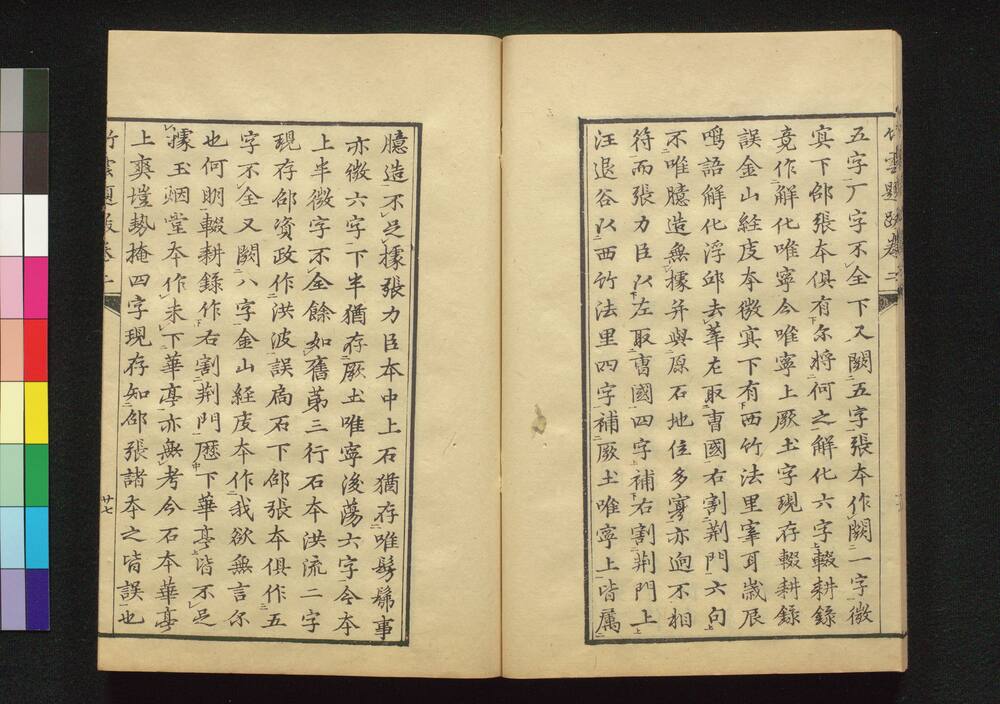 竹雲題跋卷二
五字厂字不全下又闕五字張本作闕一字微
寘下邵張本俱有尓將何之解化六字輟耕錄
竟作解化唯寧今唯寧上厥土字現存輟耕錄
誤金山經庋本微寘下有西竹法里宰耳歲辰
鳴語解化浮邱去莘左取曹國右割荆門六句
不唯臆造無據并與原石地位多寡亦迥不相
符而張力臣以左取曹國四字補右割荆門上
汪退谷以西竹法里四字補厥土唯寧上皆属
臆造不足據張力臣本中上石猶存唯髣髴事
亦微六字下半猶存厥土唯寧後蕩六字今本
上半微字不全餘如舊苐三行石本洪流二字
現存邵資政作洪波誤扃石下邵張本俱作五
字不全又闕八字金山經庋本作我欲無言尔
也何朙輟耕錄作右割荆門歷下華亭皆不足
據玉烟堂本作未下華亭亦無考今石本華亭
上爽塏勢掩四字現存知邵張諸本之皆誤也
竹雲題跋卷二
廿七